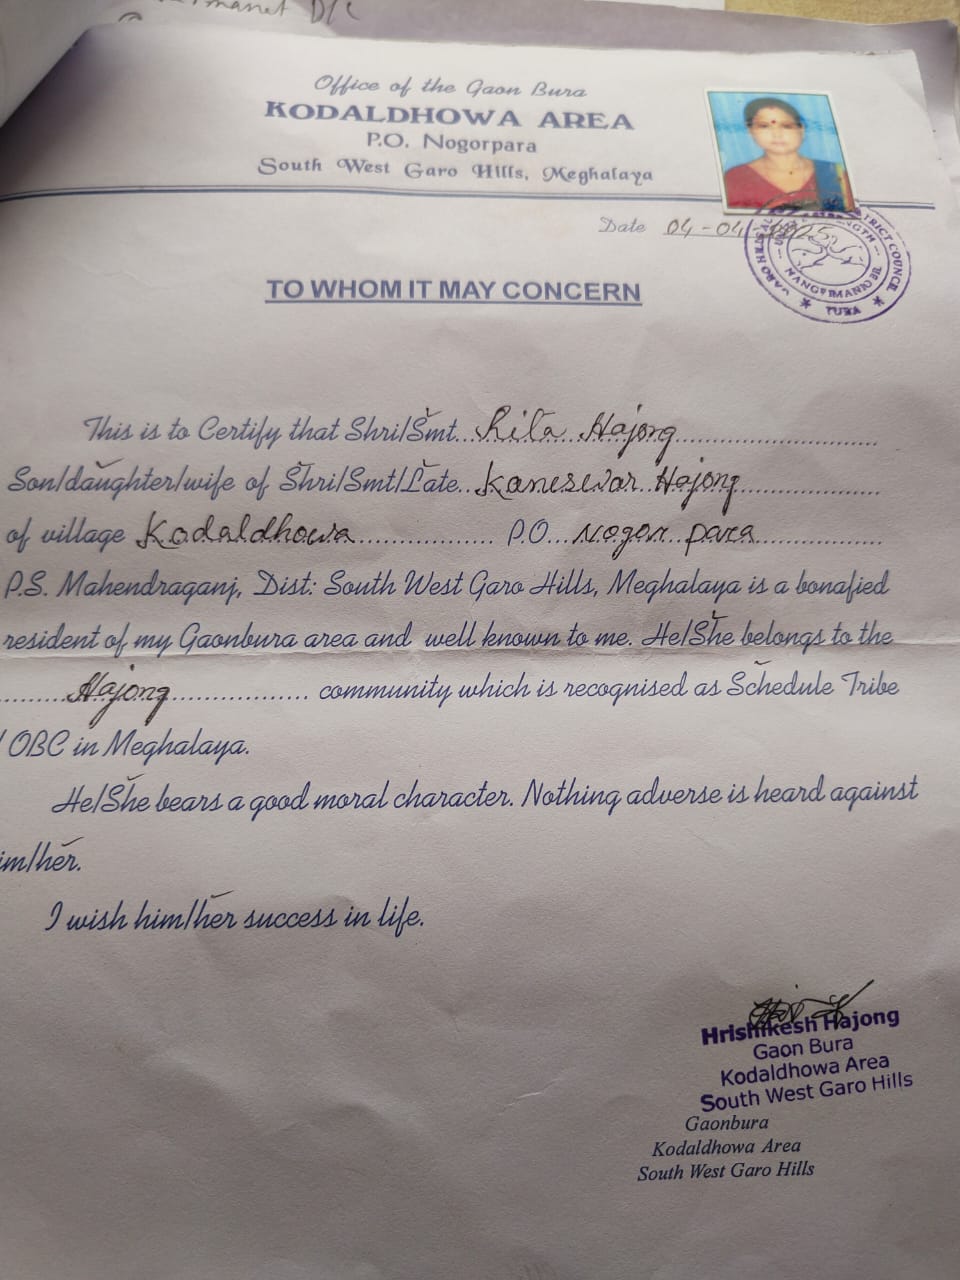 Office of the Gaon Bura
KODALDHOWA AREA
P.O. Nogorpara
South West Garo Hills, Meghalaya
Date 04-04-2025
GARO HILLS DISTRICT COUNCIL
TURA
TO WHOM IT MAY CONCERN
This is to Certify that Shri/Smt...Rita Hajong
Son/daughter/wife of Shri/Smt/Late..Kaneswar Hajong
of village Kodaldhowa P.O...Nogor para
P.S. Mahendraganj, Dist: South West Garo Hills, Meghalaya is a bonafied
resident of my Gaonbura area and well known to me. He/She belongs to the
......Hajong.................. community which is recognised as Schedule Tribe
/ OBC in Meghalaya.
He/She bears a good moral character. Nothing adverse is heard against
im/her.
I wish him/her success in life.
Hrishikesh Hajong
Gaon Bura
Kodaldhowa Area
South West Garo Hills
Gaonbura
Kodaldhowa Area
South West Garo Hills